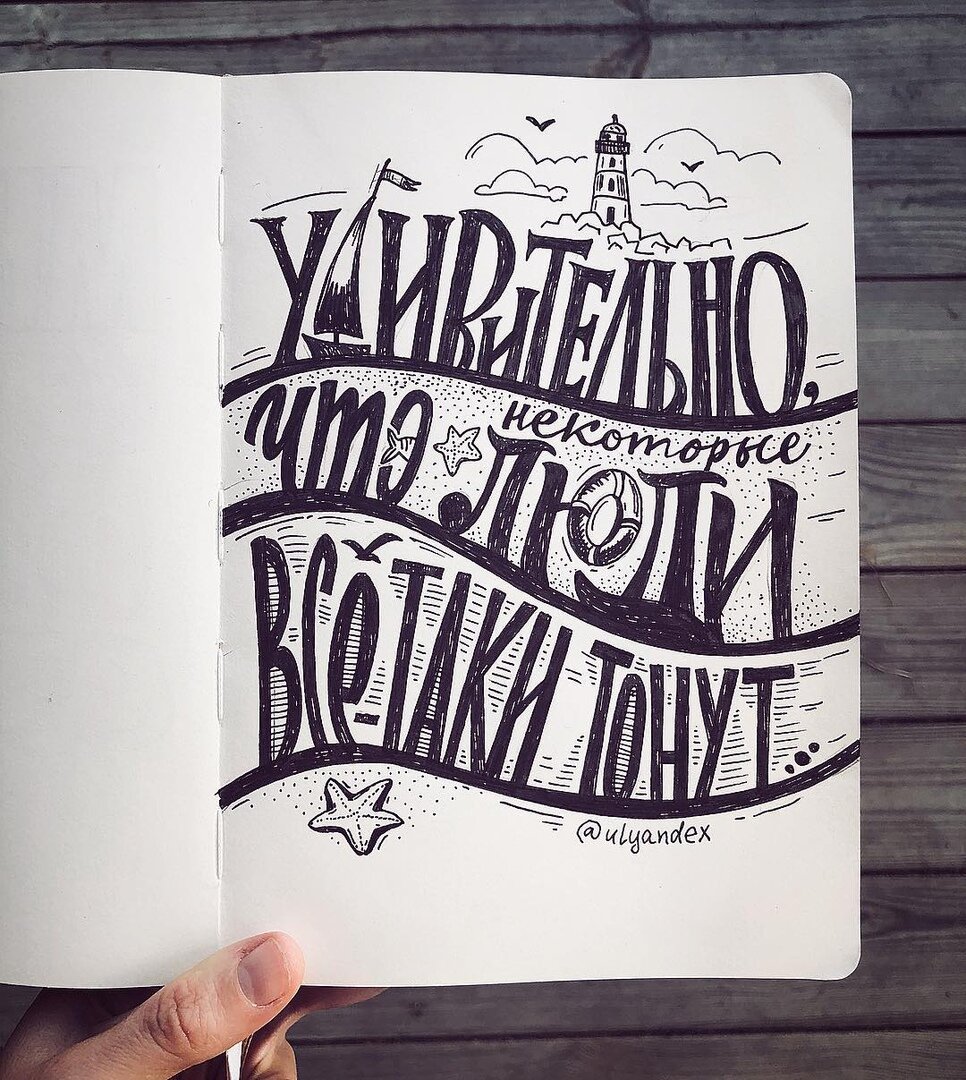 УДИВИТЕЛЬНО,
что некоторые
ЛЮДИ
ВСЁ-ТАКИ ТОНУТ...
@ulyandex